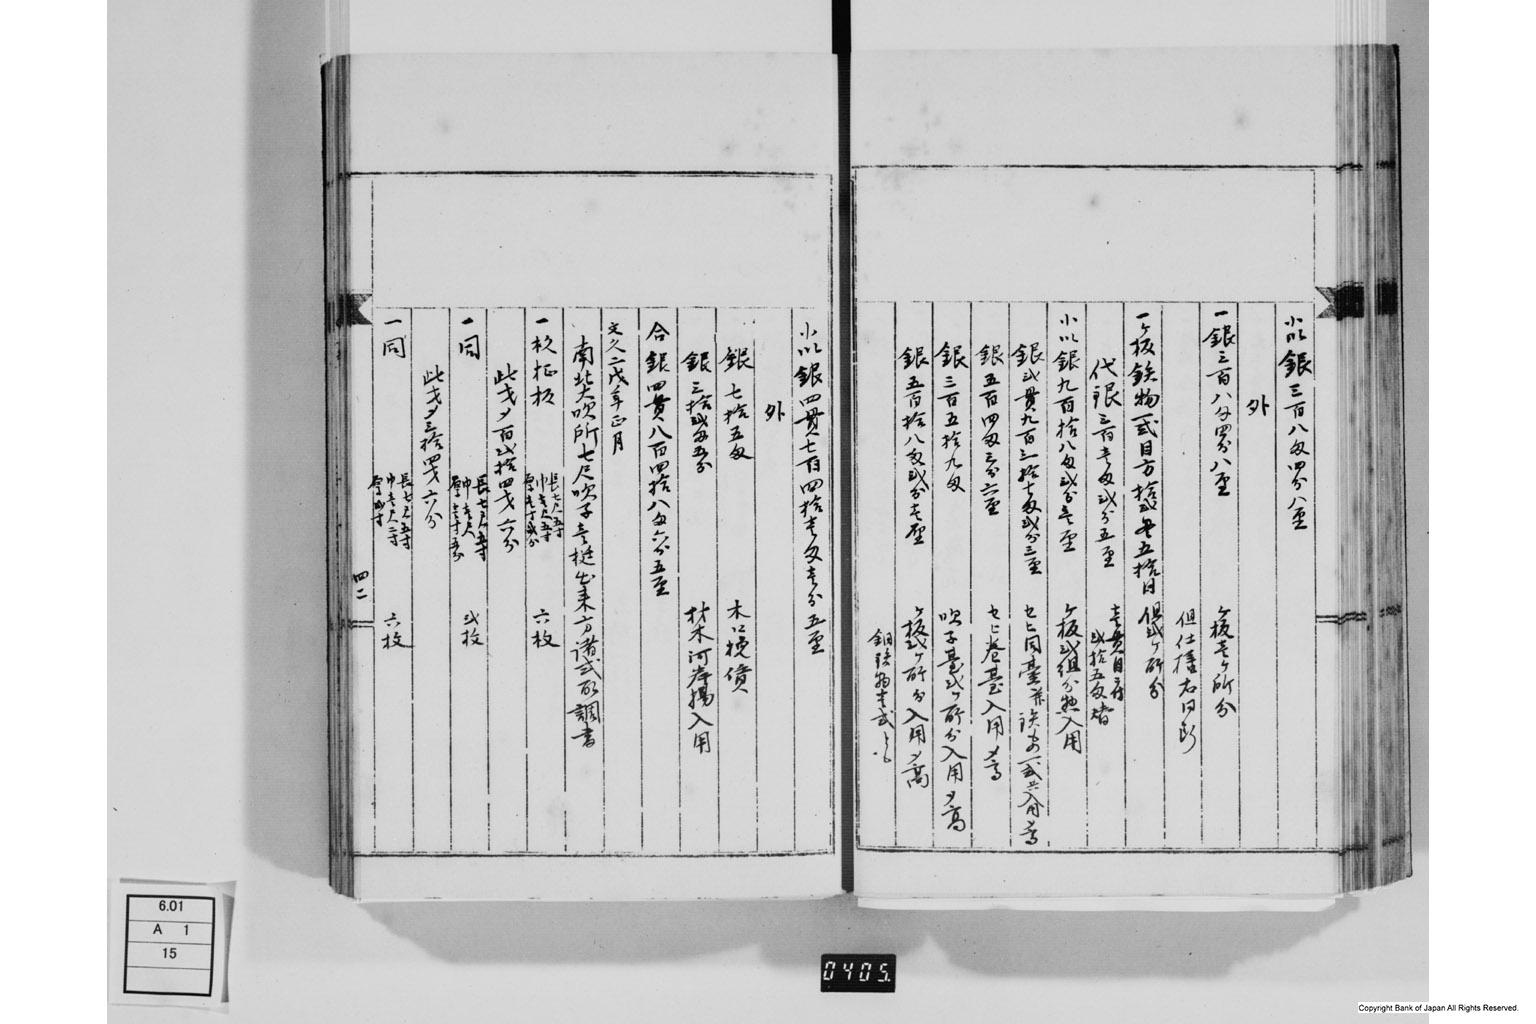 小以銀三百八匁四分八厘
外
一銀三百八匁四分八厘
ケ所分
但仕様右同断
一板鉄物一式目方拾弐貫五拾目
但弐ケ所分
代銀三百壱匁弐分五厘
壱貫目ニ付
弐拾五匁替
小以銀九百拾八匁弐分壱厘
板弐組分惣入用
銀弐貫九百三拾七匁弐分三厘
入用高
銀五百四匁三分六厘
臺入用〆高
銀三百五拾九匁
吹子臺弐ケ所分入用〆高
銀五百拾八匁弐分七厘
板弐ケ所分入用〆高
小以銀四貫七百四拾壱匁壱分五厘
外
銀七拾五匁
木口挽賃
銀三拾弐匁五分
材木河岸揚入用
合銀四貫八百四拾八匁六分五厘
文久二戌年正月
南北大吹所七尺吹子壱挺出来方諸式取調書
一松柾板
長七尺五寸
巾壱尺五寸
厚壱寸弐分
六枚
此才〆百弐拾四才六分
一同
長七尺五寸
巾壱尺
厚壱寸五分
弐枚
此才〆三拾四才六分
一同
長七尺五寸
巾壱尺二寸
厚弐寸
六枚
四二
6.01
A 1
15
0405.
Copyright Bank of Japan All Rights Reserved.